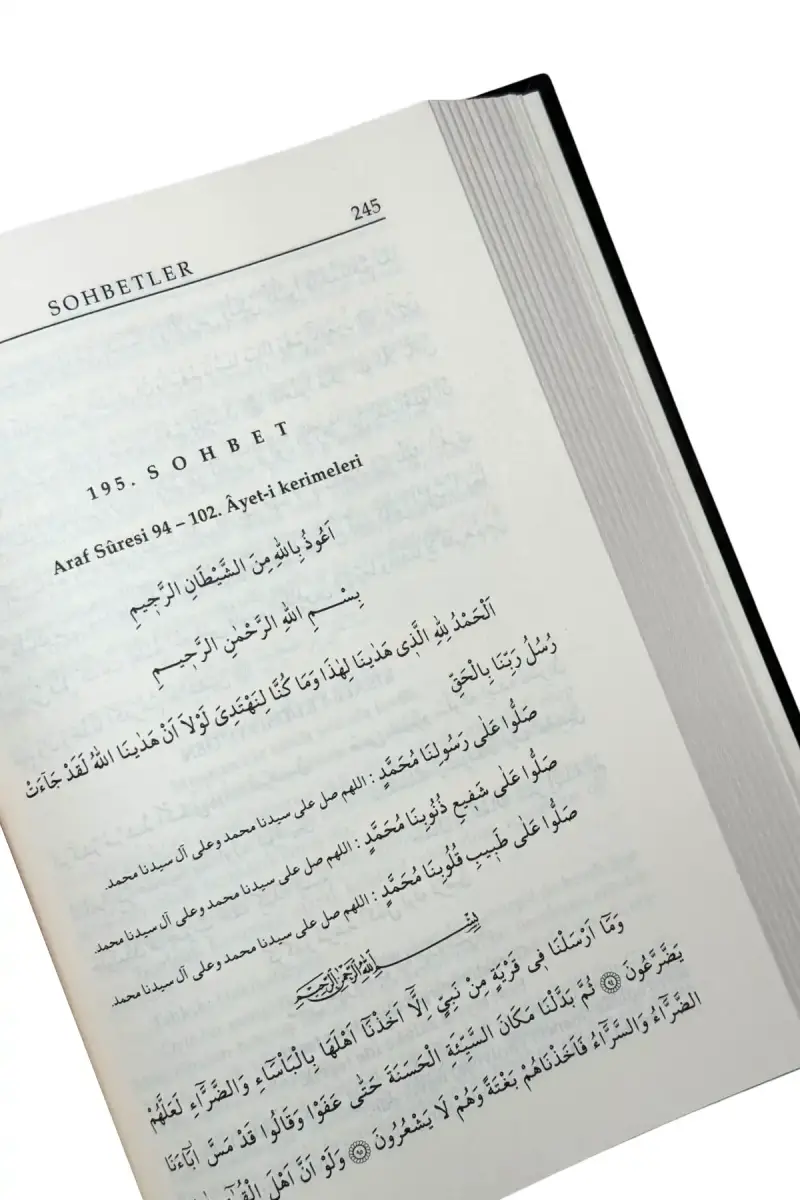 245
SOHBETLER
195. SOHBET
Araf Sûresi 94 – 102. Âyet-i kerimeleri
اَعُوذُ بِاللهِ مِنَ الشَّيْطَانِ الرَّجِيمِ
بِسْمِ اللهِ الرَّحْمٰنِ الرَّحِيمِ
اَلْحَمْدُ لِلهِ الَّذِى هَدٰينَا لِهٰذَا وَمَا كُنَّا لِنَهْتَدِىَ لَوْلاَ اَنْ هَدٰينَا اللهُ لَقَدْ جَآءَتْ
رُسُلُ رَبِّنَا بِالْحَقِّ
صَلُّوا عَلٰى رَسُولِنَا مُحَمَّدٍ : اللهم صل على سيدنا محمد وعلى آل سيدنا محمد.
صَلُّوا عَلٰى شَفِيعِ ذُنُوبِنَا مُحَمَّدٍ : اللهم صل على سيدنا محمد وعلى آل سيدنا محمد.
صَلُّوا عَلٰى طَبِيبِ قُلُوبِنَا مُحَمَّدٍ : اللهم صل على سيدنا محمد وعلى آل سيدنا محمد.
بِسْمِ اللهِ الرَّحْمٰنِ الرَّحِيمِ
وَمَٓا اَرْسَلْنَا فِى قَرْيَةٍ مِنْ نَبِيٍّ اِلَّٓا اَخَذْنَٓا اَهْلَهَا بِالْبَأْسَٓاءِ وَالضَّرَّٓاءِ لَعَلَّهُمْ
يَضَّرَّعُونَ ﴿٩٤﴾ ثُمَّ بَدَّلْنَا مَكَانَ السَّيِّئَةِ الْحَسَنَةَ حَتّٰى عَفَوْا وَقَالُوا قَدْ مَسَّ اٰبَٓاءَنَا
الضَّرَّٓاءُ وَالسَّرَّٓاءُ فَاَخَذْنَاهُمْ بَغْتَةً وَهُمْ لَا يَشْعُرُونَ ﴿٩٥﴾ وَلَوْ اَنَّ اَهْلَ